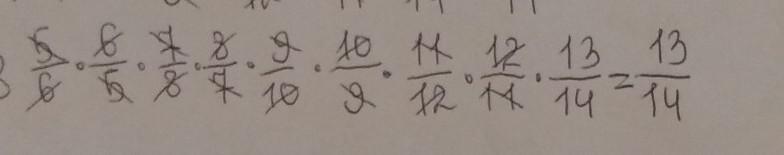 5/6 · 6/5 · 7/8 · 8/7 · 9/10 · 10/9 · 11/12 · 12/11 · 13/14 = 13/14